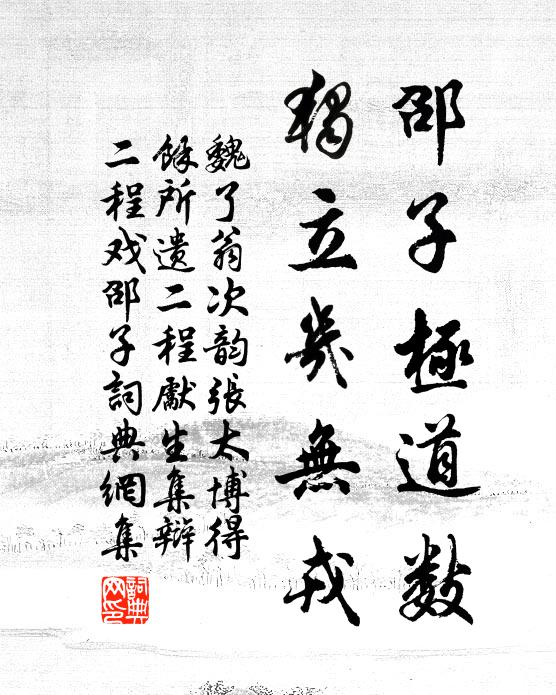 邵子極道數
獨立幾無戎
魏了翁次韵張太博得
餘所遗二程獻生集辯
二程戏邵子詞典網集
詞典